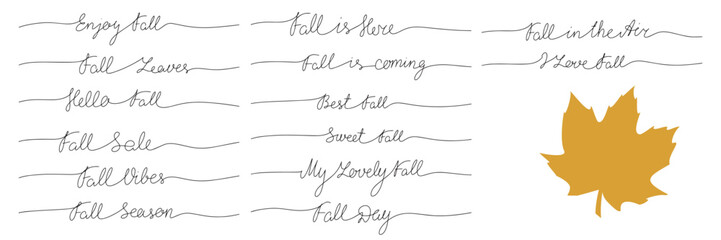 Enjoy Fall
Fall Leaves
Hello Fall
Fall Sale
Fall Vibes
Fall Season
Fall is Here
Fall is coming
Best Fall
Sweet Fall
My Lovely Fall
Fall Day
Fall in the Air
I Love Fall